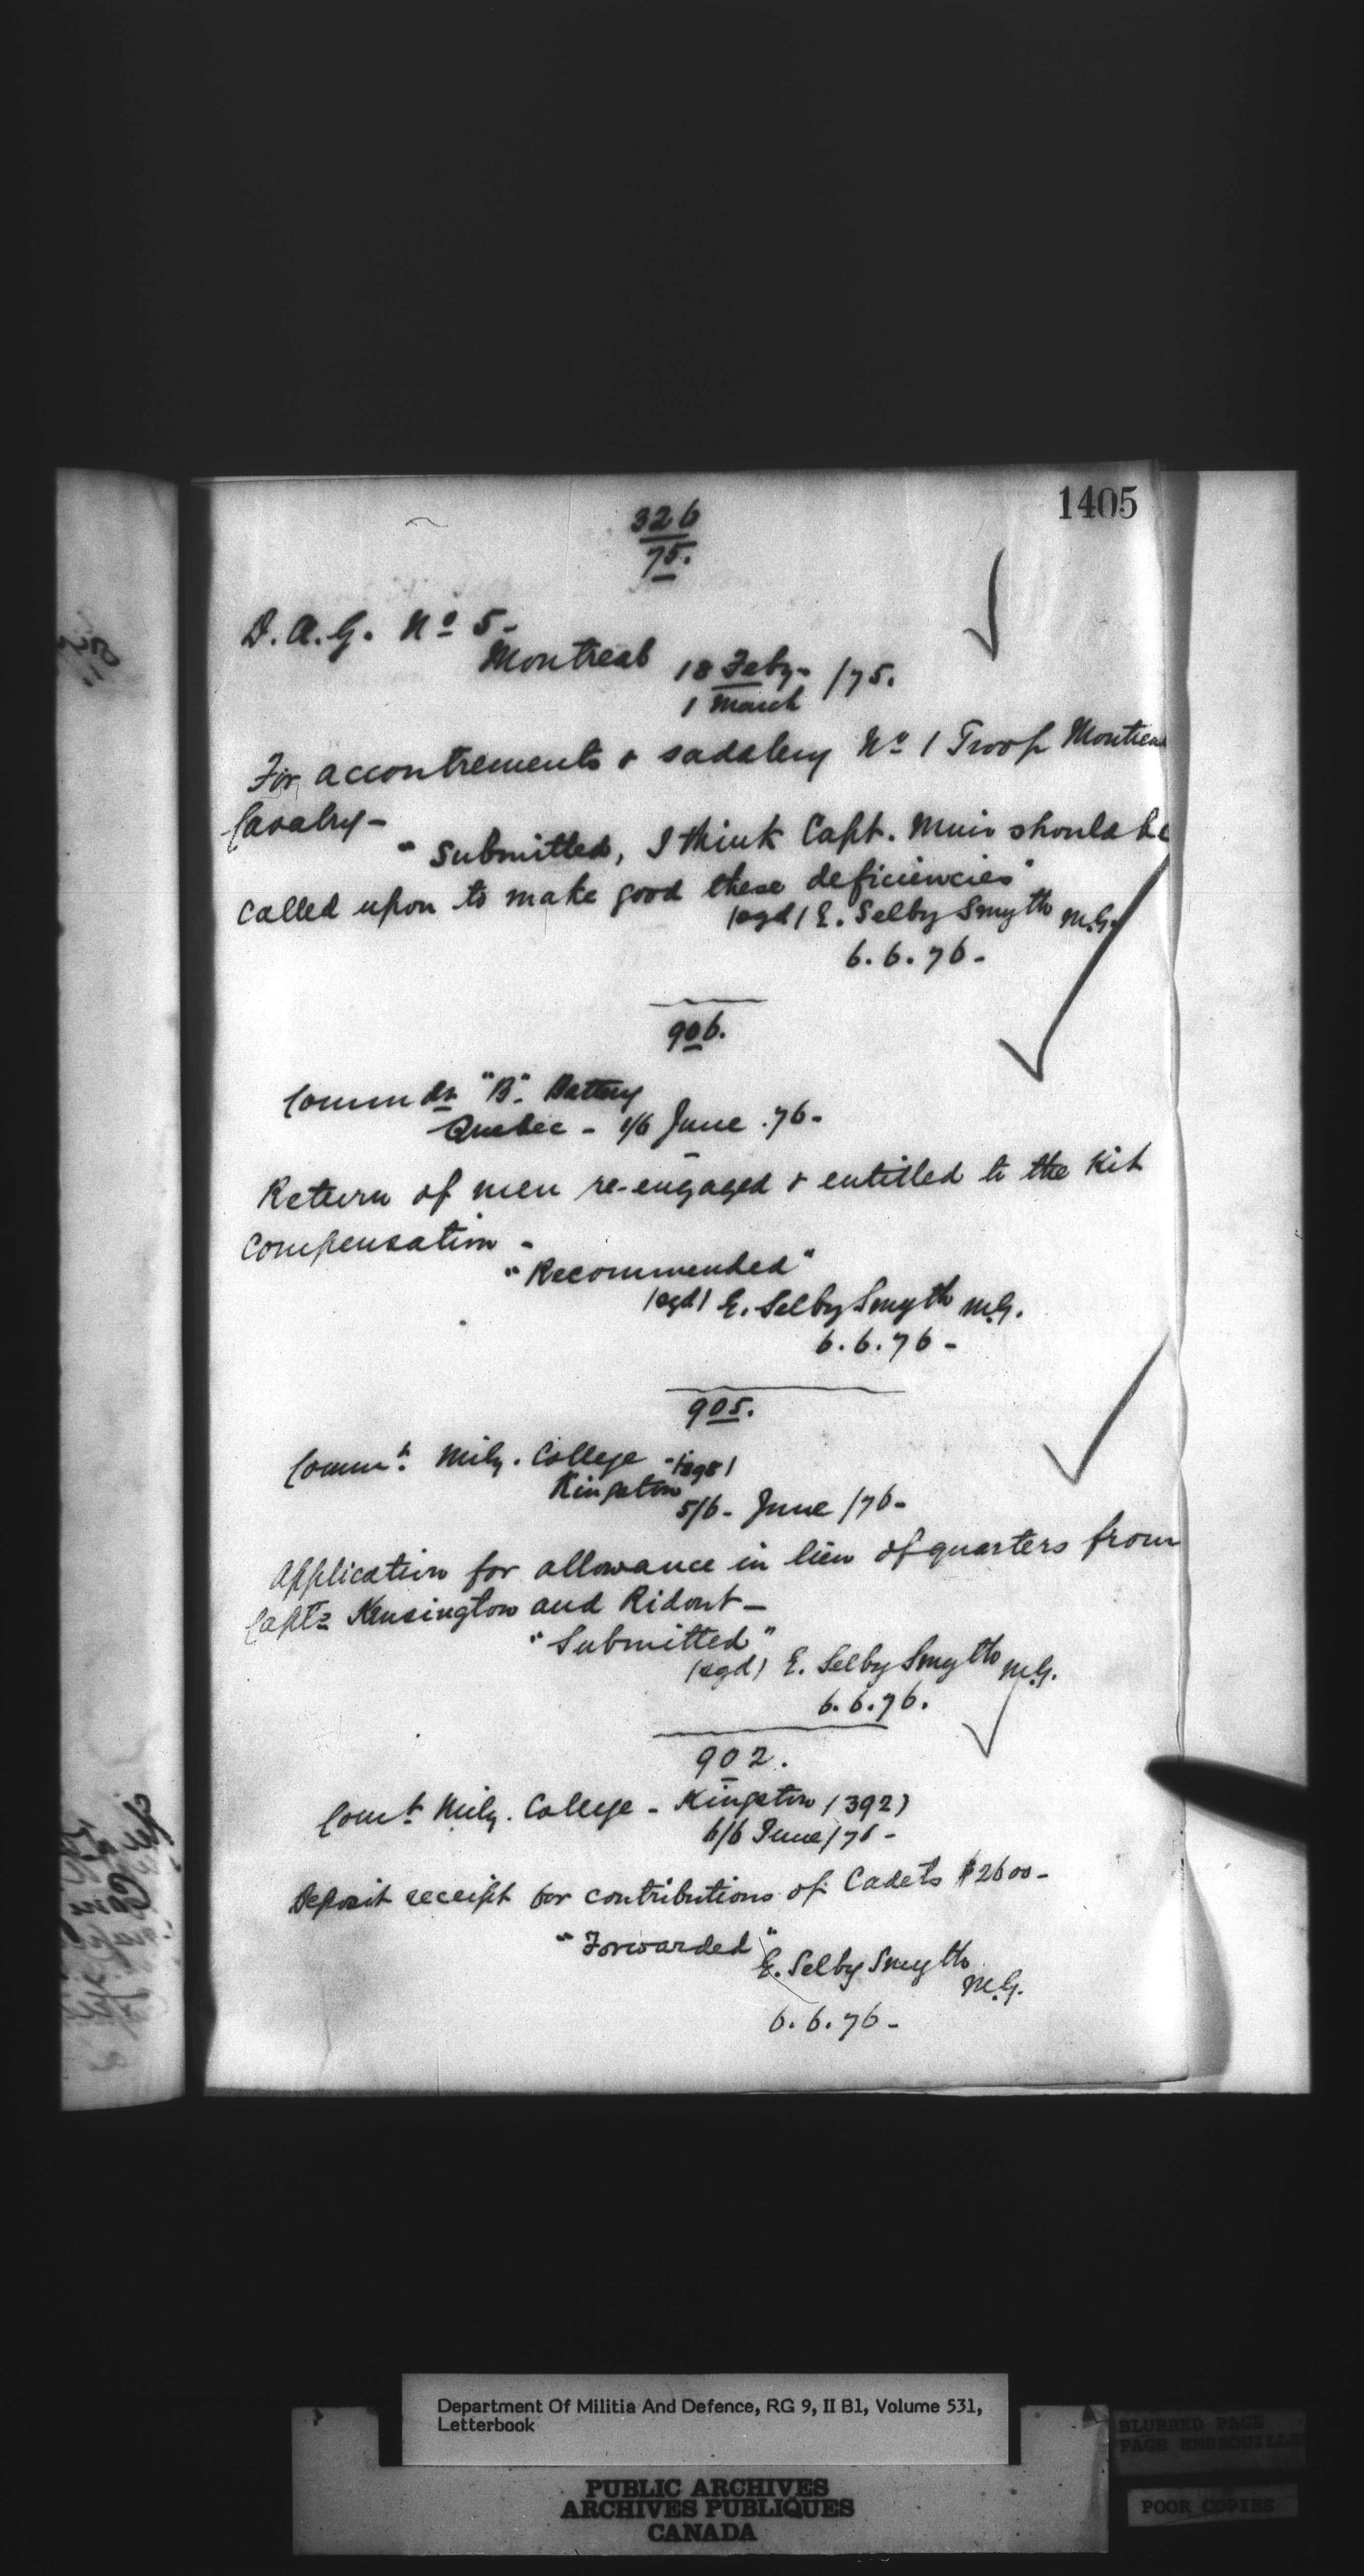 1405
326
75.
D. A. G. No 5-
Montreal 18 Feby- /75.
1 March
For accoutrements & saddlery No 1 Troop Montreal
Cavalry-
"Submitted, I think Capt. Muir should be
called upon to make good these deficiencies"
(sgd) E. Selby Smyth M.G.
6.6.76-
906.
Commdt "B". Battery
Quebec - 1/6 June .76-
Return of men re-engaged & entitled to the Kit
Compensation -
"Recommended"
(sgd) E. Selby Smyth M.G.
6.6.76-
905.
Commt. Mily. College -
Kingston
5/6- June /76-
Application for allowance in lieu of quarters from
Capts Kensington and Ridout-
"Submitted"
(sgd) E. Selby Smyth M.G.
6.6.76.
902.
Comt Mily. College - Kingston (392)
6/6 June /76-
Deposit receipt for contributions of Cadets $2600-
"Forwarded"
E. Selby Smyth
M.G.
6.6.76-
Department Of Militia And Defence, RG 9, II B1, Volume 531,
Letterbook
PUBLIC ARCHIVES
ARCHIVES PUBLIQUES
CANADA
BLURRED PAGE
PAGE EMBROUILLE
POOR COPIES